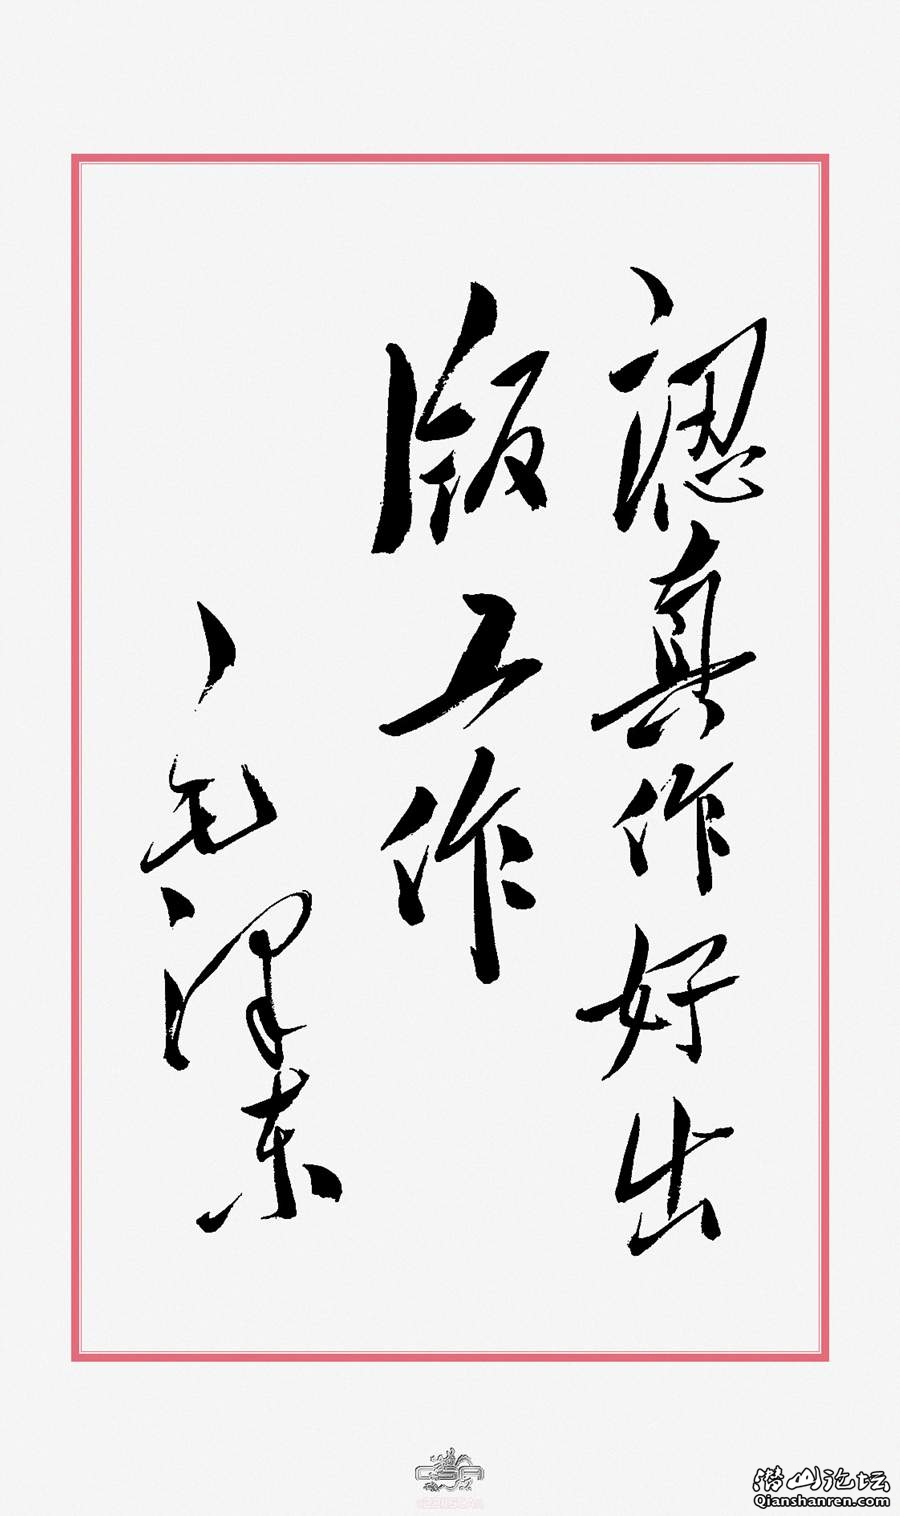 認真作好出
版工作
毛泽东
潜山论坛
Qianshanren.com